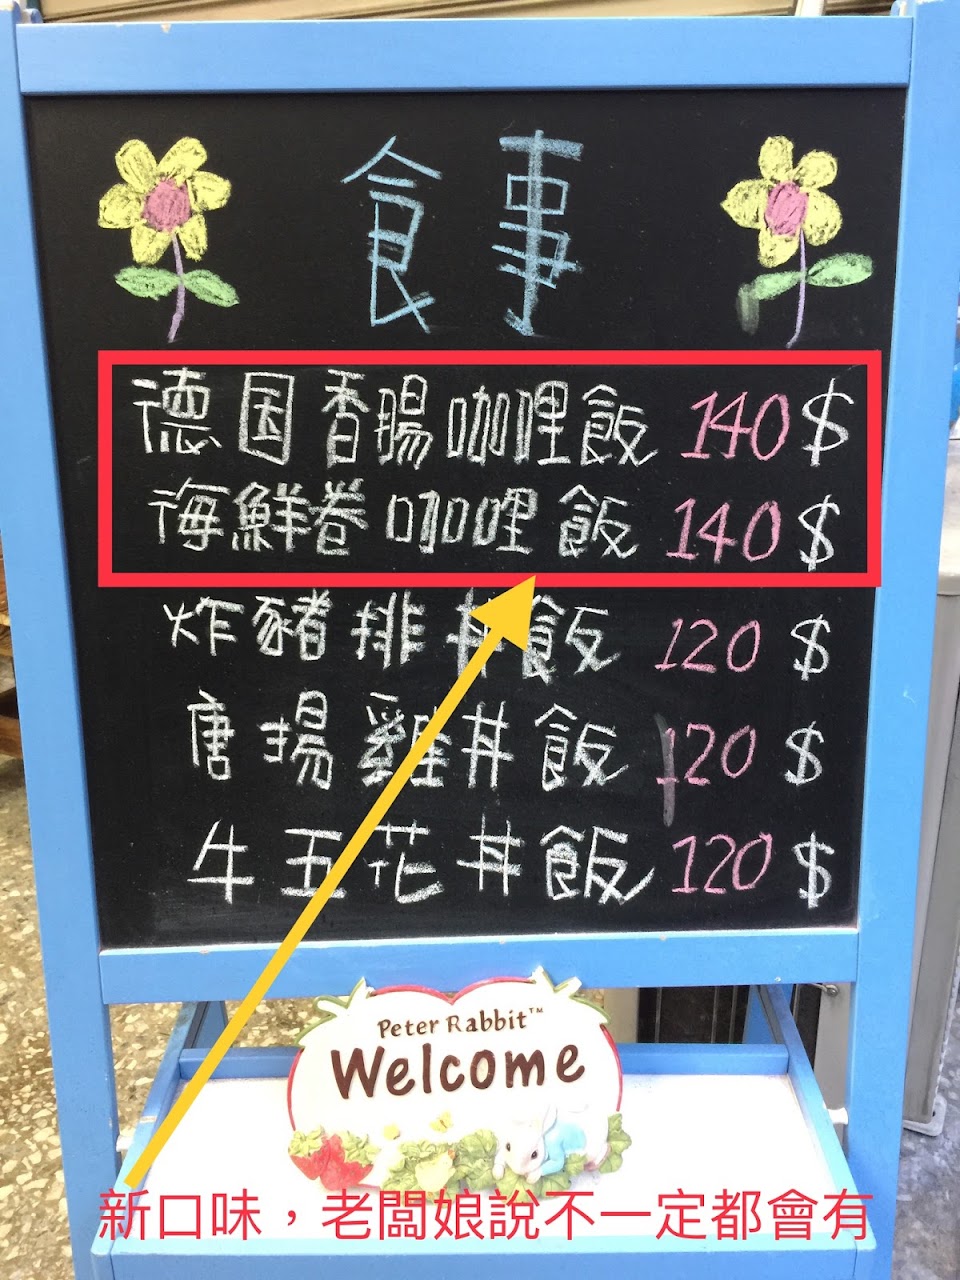 食事
德国香腸咖哩飯 140$
海鮮卷咖哩飯 140$
炸豬排丼飯 120$
唐揚雞丼飯 120$
牛五花丼飯 120$
Peter Rabbit™
Welcome
新口味，老闆娘說不一定都會有